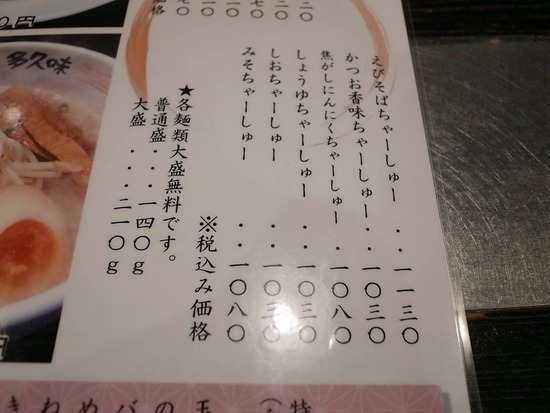 えびそばちゃーしゅー・・一一三〇
かつお香味ちゃーしゅー・・一〇三〇
焦がしにんにくちゃーしゅー・・一〇八〇
しょうゆちゃーしゅー・・一〇三〇
しおちゃーしゅー・・一〇三〇
みそちゃーしゅー・・一〇八〇
※税込み価格
★各麺類大盛無料です。
普通盛・・・一四〇g
大盛・・・二一〇g
多久味